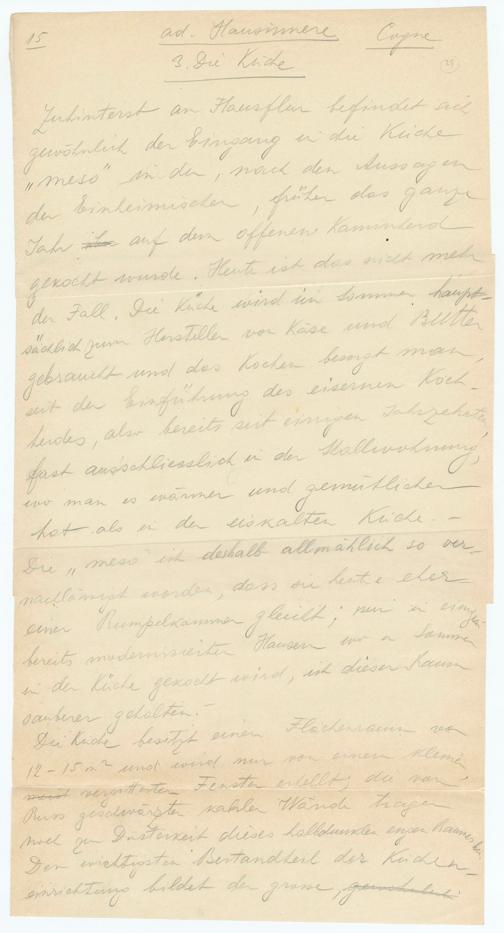 15 ad. Hausinnere Cogne
3. Die Küche
Zuhinterst an Hausflur befindet sich
gewöhnlich der Eingang in die Küche
„meso" in der, nach den Aussagen
der Einheimischen, früher das ganze
Jahr auf dem offenen Kaminherd
gekocht wurde. Heute ist das nicht mehr
der Fall. Die Küche wird im Sommer haupt-
sächlich zum Herstellen von Käse und Butter
gebraucht und das Kochen besorgt man,
seit der Einführung des eisernen Koch-
herdes, also bereits seit einigen Jahrzehnten,
fast ausschliesslich in der Stallwohnung,
wo man es wärmer und gemütlicher
hat als in der eiskalten Küche. –
Die „meso" ist deshalb allmählich so ver-
nachlässigt worden, dass sie heute eher
einer Rumpelkammer gleicht; nur in einigen
bereits modernisierten Häusern wo im Sommer
in der Küche gekocht wird, ist dieser Raum
sauberer gehalten. –
Die Küche besitzt einen Flächenraum von
12-15 m² und wird nur von einem kleinen,
meist vergitterten Fenster erhellt; die vom
Russ geschwärzten kahlen Wände tragen
noch zur Düsterkeit dieses halbdunklen engen Raumes bei.
Den wichtigsten Bestandteil der Küchen-
einrichtung bildet der grosse,